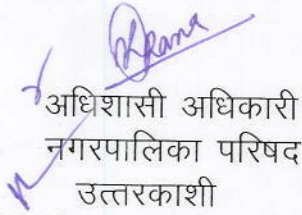 अधिशासी अधिकारी
नगरपालिका परिषद
उत्तरकाशी